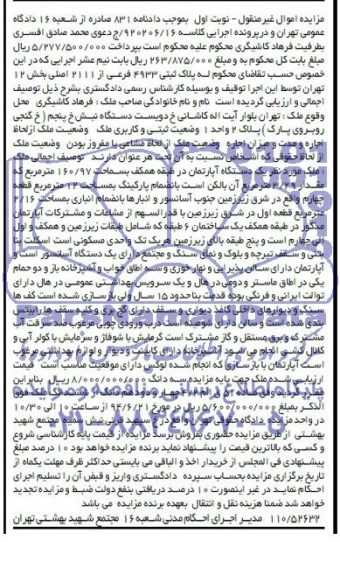 مزایده اموال غیرمنقول - نوبت اول بموجب دادنامه ۸۳۱ صادره از شعبه ۱۶ دادگاه
عمومی تهران و در پرونده اجرایی کلاسه ۹۲۰۲۰۶/۱۶ج دعوی محمد صادق افسری
بطرفیت فرهاد کاشیگری محکوم علیه محکوم است بپرداخت ۵/۲۷۷/۵۰۰/۰۰۰ ریال
مبلغ بابت کل محکوم به و مبلغ ۲۶۳/۸۷۵/۰۰۰ ریال بابت نیم عشر اجرایی که در این
خصوص حسب تقاضای محکوم له پلاک ثبتی ۴۹۳۳ فرعی از ۲۱۱۱ اصلی بخش ۱۲
تهران توسط این اجرا توقیف و بوسیله کارشناس رسمی دادگستری بشرح ذیل توصیف
اجمالی و ارزیابی گردیده است نام و نام خانوادگی صاحب ملک : فرهاد کاشیگری محل
وقوع ملک : تهران بلوار آیت اله کاشانی خ دویست دستگاه نبش خ پنجم ( خ گنجی
روبروی پارک ) پلاک ۲ واحد ۱ وضعیت ثبتی و کاربری ملک وضعیت ملک از لحاظ
اجاره و مدت و میزان اجاره وضعیت ملک از لحاظ مشاعی یا مفروز بودن وضعیت ملک
از لحاظ حقوقی که اشخاص نسبت به آن تحت هر عنوان دارند توصیف اجمالی ملک
: ملک مورد نظر یک دستگاه آپارتمان در طبقه همکف بمساحت ۱۶۰/۹۷ مترمربع که
مقدار ۳/۶۹ مترمربع آن بالکن است بانضمام پارکینگ بمساحت ۱۲ مترمربع قطعه
چهارم واقع در شرق زیرزمین جنوب آسانسور و انبارها بانضمام انباری بمساحت ۲/۱۶
مترمربع قطعه اول در شرق زیرزمین با قدرالسهم از مشاعات و مشترکات آپارتمان
مذکور در طبقه همکف یک ساختمان ۶ طبقه که شامل طبقات زیرزمین و همکف و اول
الی چهارم است و پنج طبقه بالای زیرزمین هریک تک واحدی مسکونی است اسکلت بنا
بتنی و سقف تیرچه و بلوک و نمای سنگ و مجتمع دارای یک دستگاه آسانسور است و
آپارتمان دارای سالن پذیرایی و نهارخوری و سه اطاق خواب و آشپزخانه باز و دو حمام
یکی در اطاق ماستر و دومی در هال و یک سرویس بهداشتی عمومی در هال دارای
توالت ایرانی و فرنگی بوده قدمت بنا حدود ۱۵ سال ولی بازسازی شده است کف ها
سنگ و دیوارهای داخلی کاغذ دیواری و سقف دارای گچ بری و کلیه سقف ها رابیتس
بندی شده است و سالن دارای شومینه است درب ورودی چوبی مرغوب ضد سرقت آب
مشترک و برق مستقل و گاز مشترک است گرمایش با شوفاژ و سرمایش با کولر آبی و
کانال کشی انجام می شود آشپزخانه دارای کابینت و دیوار و لوازم بهداشتی مرغوب
است آپارتمان با بازسازی که انجام شده لوکس دارای موقعیت مناسب است قیمت
ارزیابی شده ملک جهت پایه مزایده سه دانگ ۸/۰۰۰/۰۰۰/۰۰۰ ریال بنابر این
مقرر گردید
الذکر بمبلغ ۵/۶۰۰/۰۰۰/۰۰۰ ریال در مورخ ۹۴/۶/۲۱ از ساعت ۱۰ الی ۱۰/۳۰
در واحد مزایده دادگاه حقوقی تهران واقع در خ سپهبد قرنی نبش سمیه مجتمع شهید
بهشتی از طریق مزایده حضوری بفروش برسد مزایده از قیمت پایه کارشناسی شروع
و کسی که بالاترین قیمت را پیشنهاد نماید برنده مزایده خواهد بود ۱۰ درصد مبلغ
پیشنهادی فی المجلس از خریدار اخذ و الباقی می بایستی حداکثر ظرف مهلت یکماه از
تاریخ برگزاری مزایده بحساب سپرده دادگستری واریز و قبض آن را تسلیم اجرای
احکام نماید در غیر اینصورت ۱۰ درصد دریافتی بنفع دولت ضبط و مزایده تجدید
خواهد شد ضمنا هزینه نقل و انتقال بعهده برنده مزایده می باشد
۱۱۰/۵۲۶۳۲ مدیر اجرای احکام مدنی شعبه ۱۶ مجتمع شهید بهشتی تهران